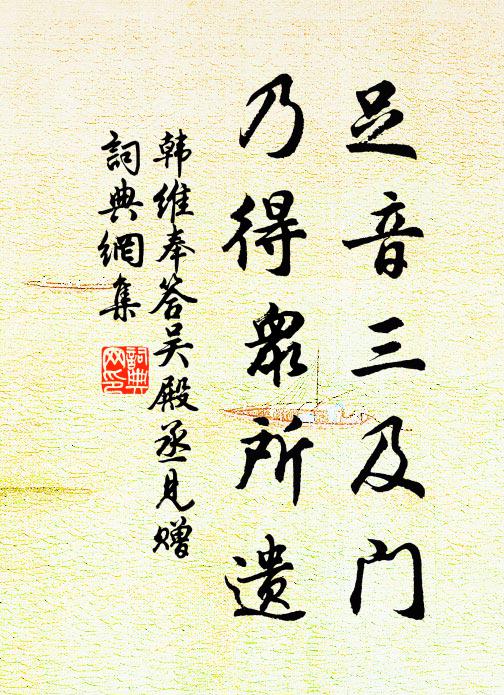 足音三及门
乃得眾所遗
韩维奉答吴殿丞见赠
詞典網集
詞典网印